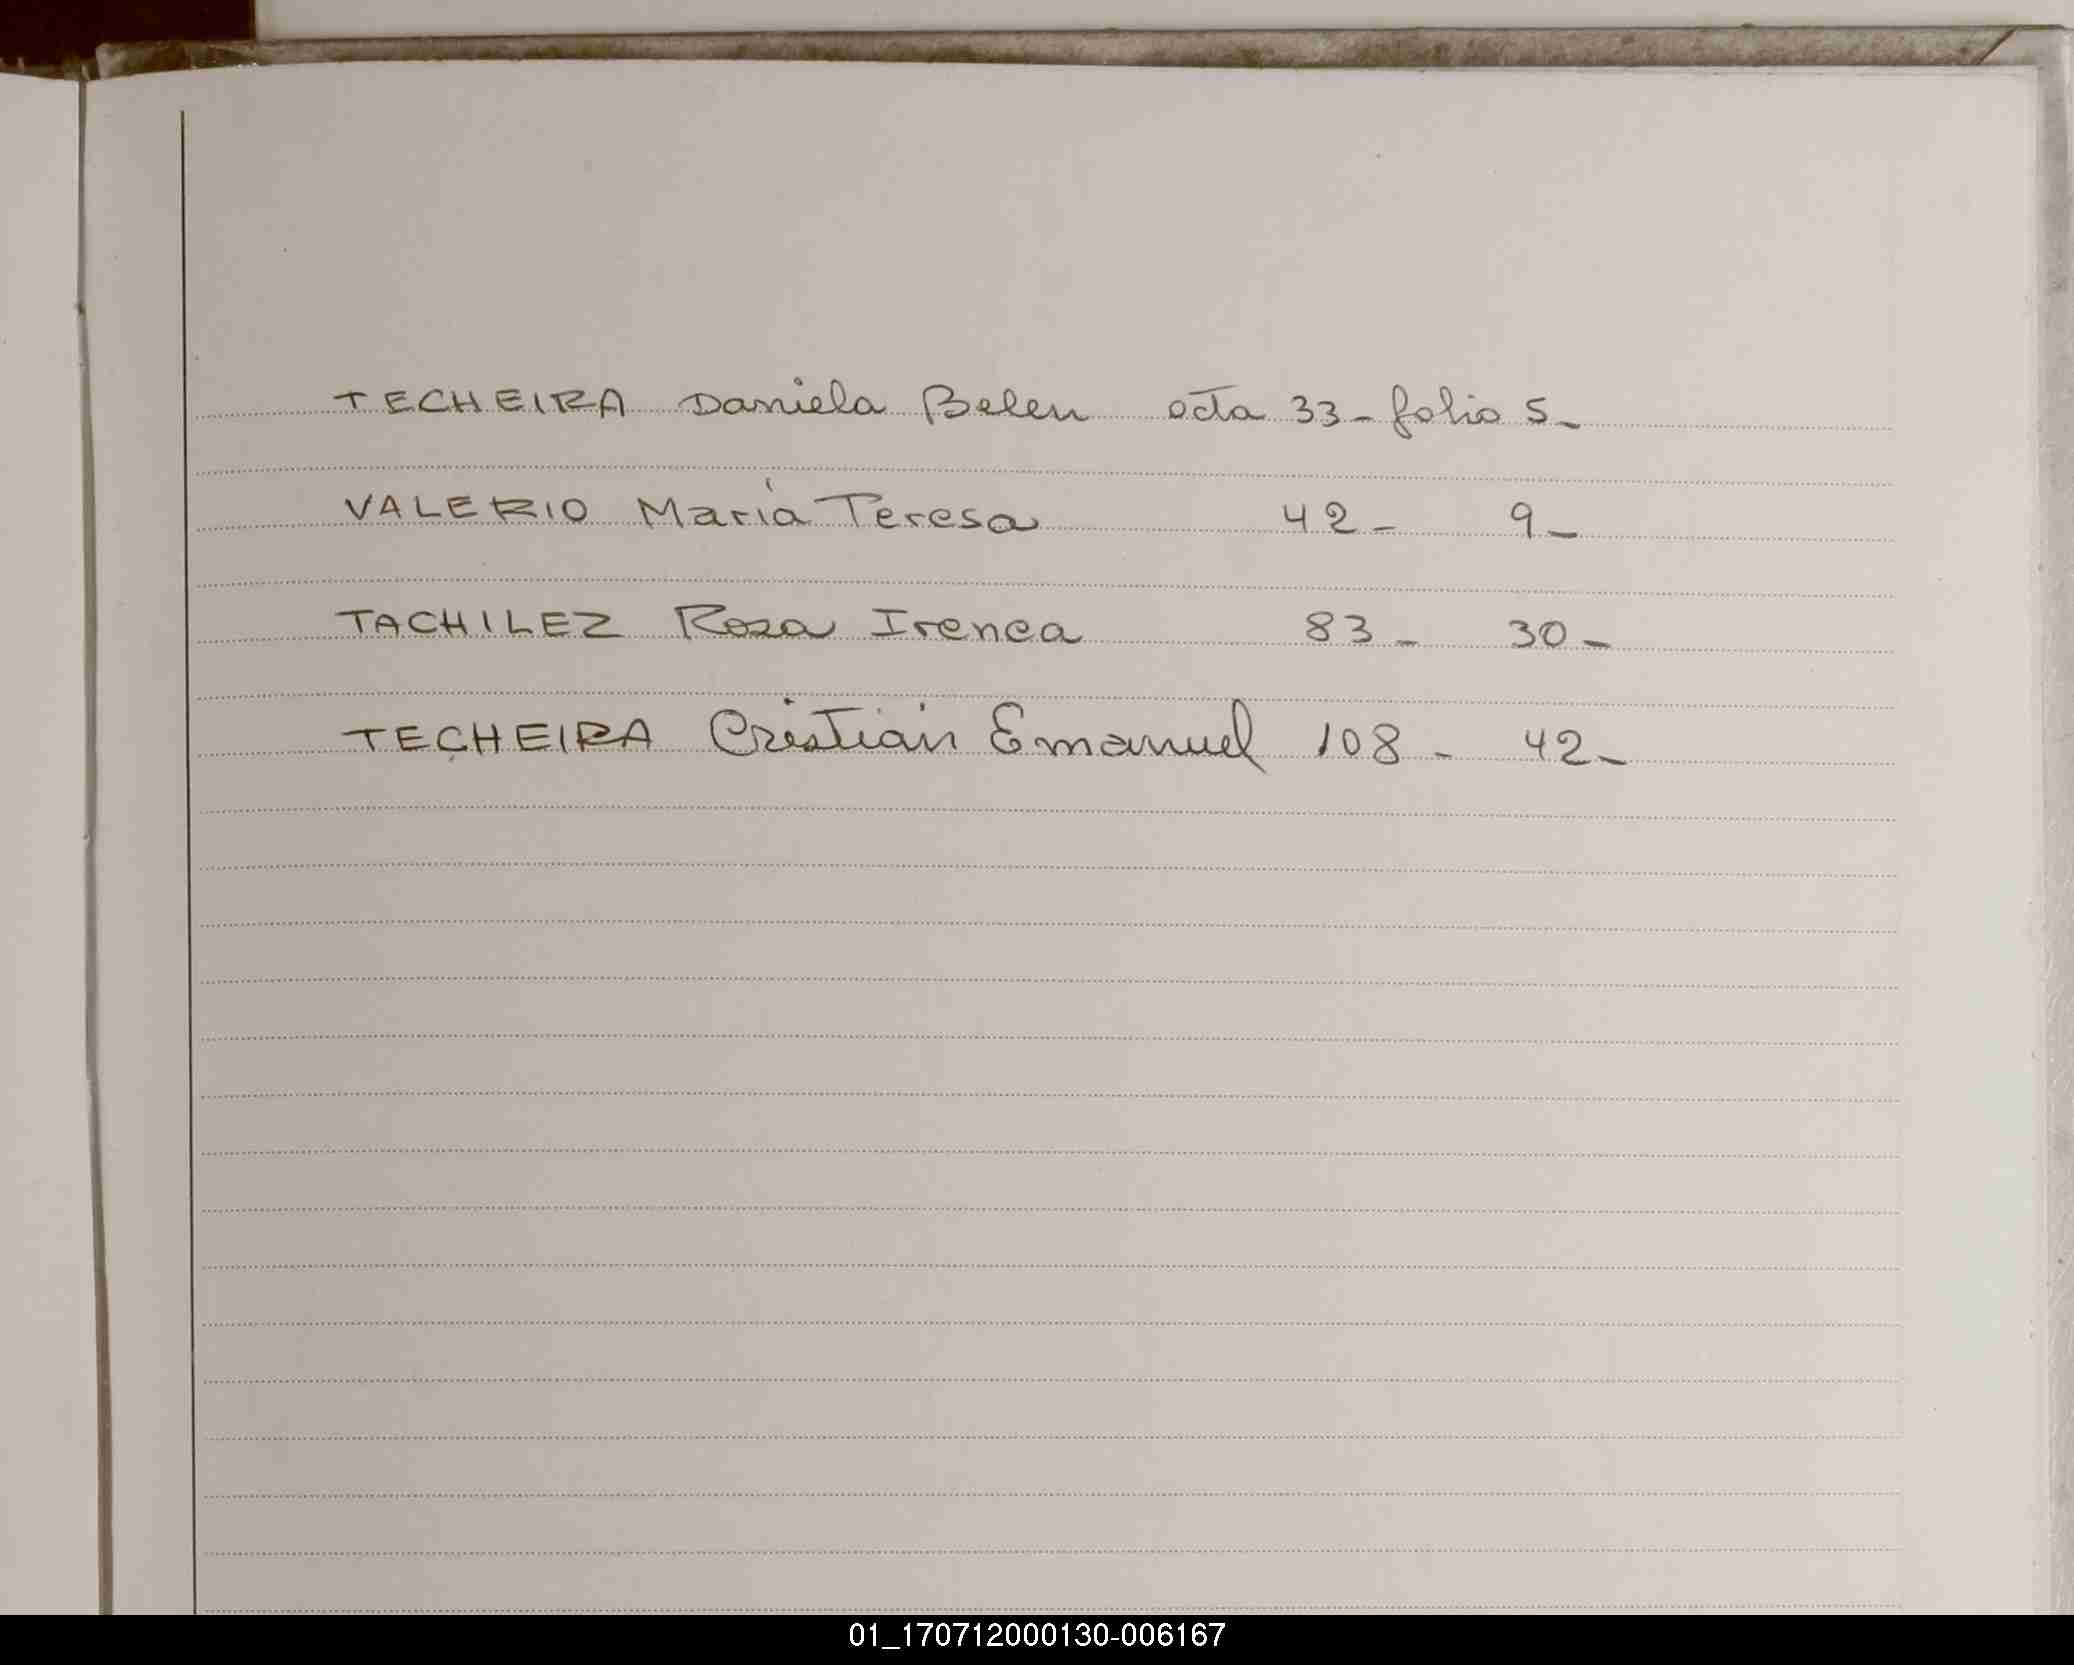 TECHEIRA Daniela Belen acta 33 - folio 5 -
VALERIO María Teresa 42 - 9 -
TACHILEZ Rosa Irenea 83 - 30 -
TECHEIRA Cristian Emanuel 108 - 42 -
01_170712000130-006167